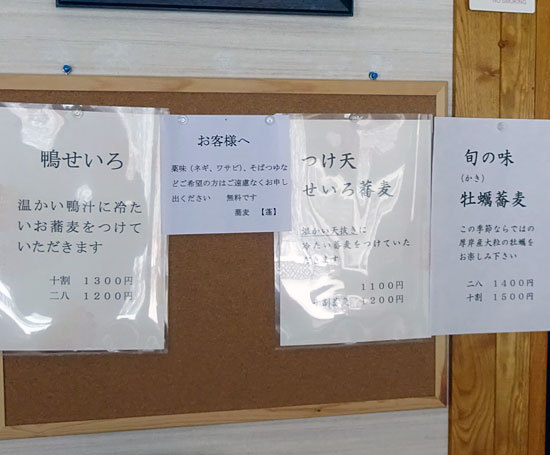 NO SMOKING
鴨せいろ
温かい鴨汁に冷た
いお蕎麦をつけて
いただきます
十割 1300円
二八 1200円
お客様へ
薬味（ネギ、ワサビ）、そばつゆな
どご希望の方はご遠慮なくお申し
出ください 無料です
蕎麦 【蓬】
つけ天
せいろ蕎麦
温かい天抜きに
冷たい蕎麦をつけていた
だきます
1100円
十割蕎麦 1200円
旬の味
(かき)
牡蠣蕎麦
この季節ならではの
厚岸産大粒の牡蠣を
お楽しみ下さい
二八 1400円
十割 1500円